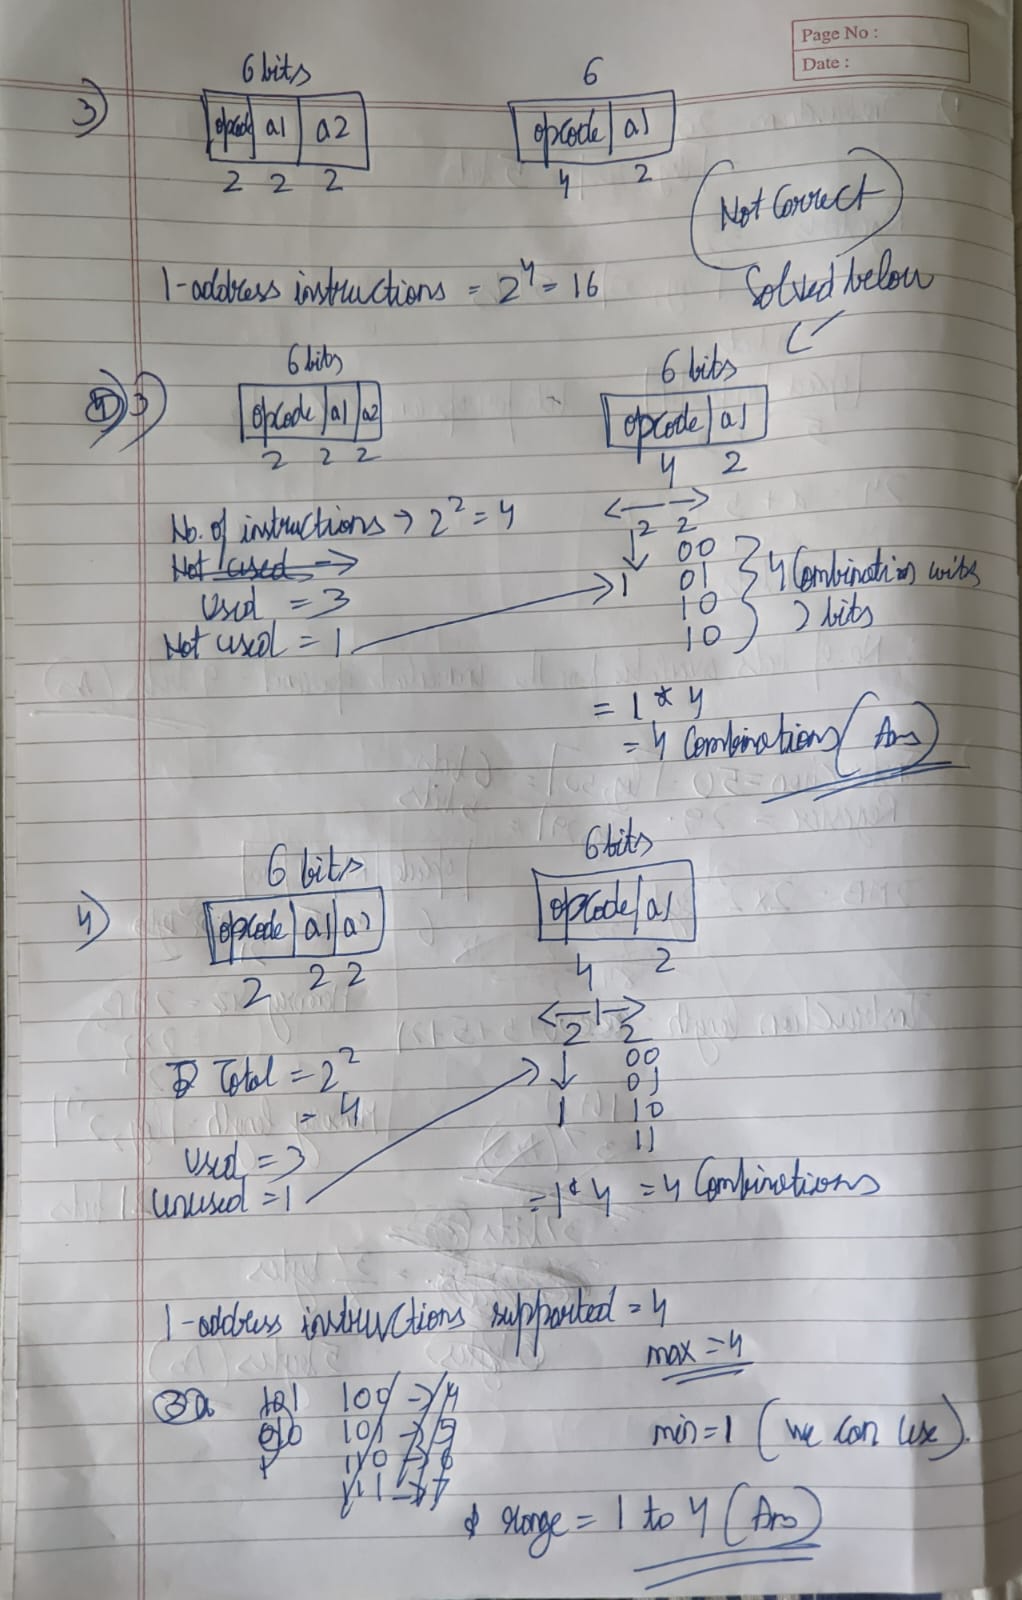 Page No :
Date :
3)
6 bits
opcode a1 a2
2 2 2
6
opcode a1
4 2
(Not Correct)
Solved below
1-address instructions = 2^4 = 16
3)
6 bits
opcode a1 a2
2 2 2
6 bits
opcode a1
4 2
No. of instructions → 2^2 = 4
Not used →
Used = 3
Not used = 1
2 2
1
00
01
10
10
4 Combination with
2 bits
= 1 * 4
= 4 Combinations (Ans)
4)
6 bits
opcode a1 a2
2 2 2
6 bits
opcode a1
4 2
2 2
1
00
01
10
11
Total = 2^2
= 4
Used = 3
Unused = 1
= 1 * 4 = 4 Combinations
1-address instructions supported = 4
max = 4
min = 1 (we can use).
100 → 4
101 → 5
110 → 6
111 → 7
range = 1 to 4 (Ans)